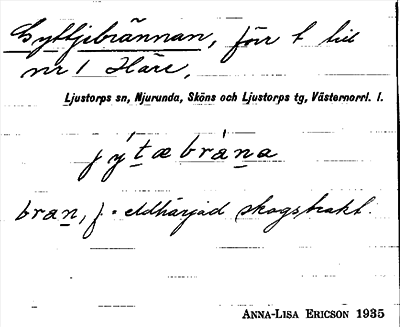 Gyttjebrännan, förr t hil
nr 1 Häre,
Ljustorps sn, Njurunda, Sköns och Ljustorps tg, Västernorrl. l.
j ý t æ b r à n a
bran, f. eldhärjad skogstrakt.
ANNA-LISA ERICSON 1935